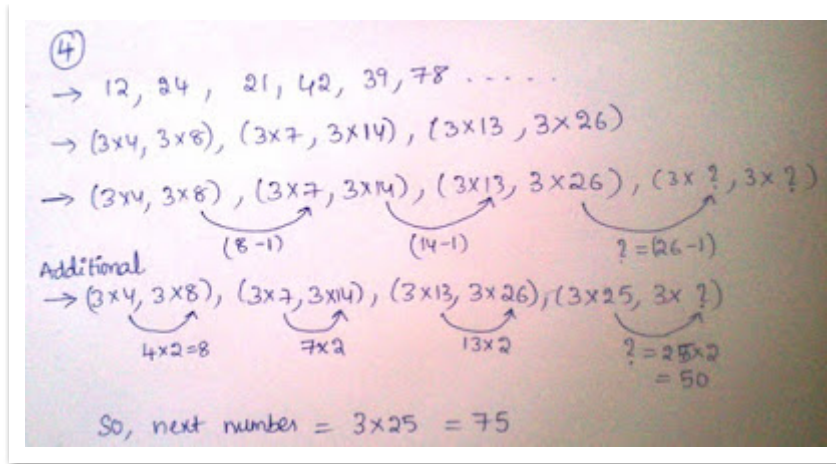 4
→ 12, 24, 21, 42, 39, 78 .....
→ (3×4, 3×8), (3×7, 3×14), (3×13, 3×26)
→ (3×4, 3×8), (3×7, 3×14), (3×13, 3×26), (3×?, 3×?)
(8-1) (14-1) ?=(26-1)
Additional
→ (3×4, 3×8), (3×7, 3×14), (3×13, 3×26), (3×25, 3×?)
4×2=8 7×2 13×2 ?=25×2
=50
So, next number = 3×25 = 75